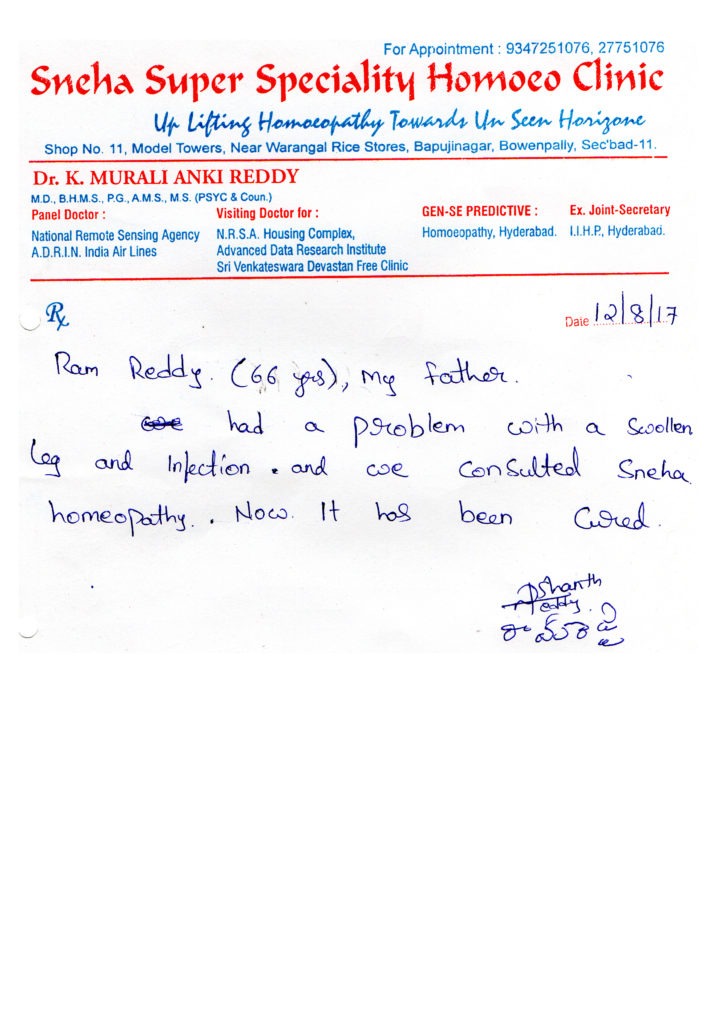 For Appointment : 9347251076, 27751076
Sneha Super Speciality Homoeo Clinic
Up Lifting Homoeopathy Towards Un Seen Horizone
Shop No. 11, Model Towers, Near Warangal Rice Stores, Bapujinagar, Bowenpally, Sec'bad-11.
Dr. K. MURALI ANKI REDDY
M.D., B.H.M.S., P.G., A.M.S., M.S. (PSYC & Coun.)
Panel Doctor :
National Remote Sensing Agency
A.D.R.I.N. India Air Lines
Visiting Doctor for :
N.R.S.A. Housing Complex,
Advanced Data Research Institute
Sri Venkateswara Devastan Free Clinic
GEN-SE PREDICTIVE :
Homoeopathy, Hyderabad.
Ex. Joint-Secretary
I.I.H.P., Hyderabad.
Rx
Date 12/8/17
Ram Reddy. (66 yrs), my father.
had a problem with a swollen
leg and Infection. and we consulted Sneha
homeopathy. Now. It has been Cured.
Reddy.